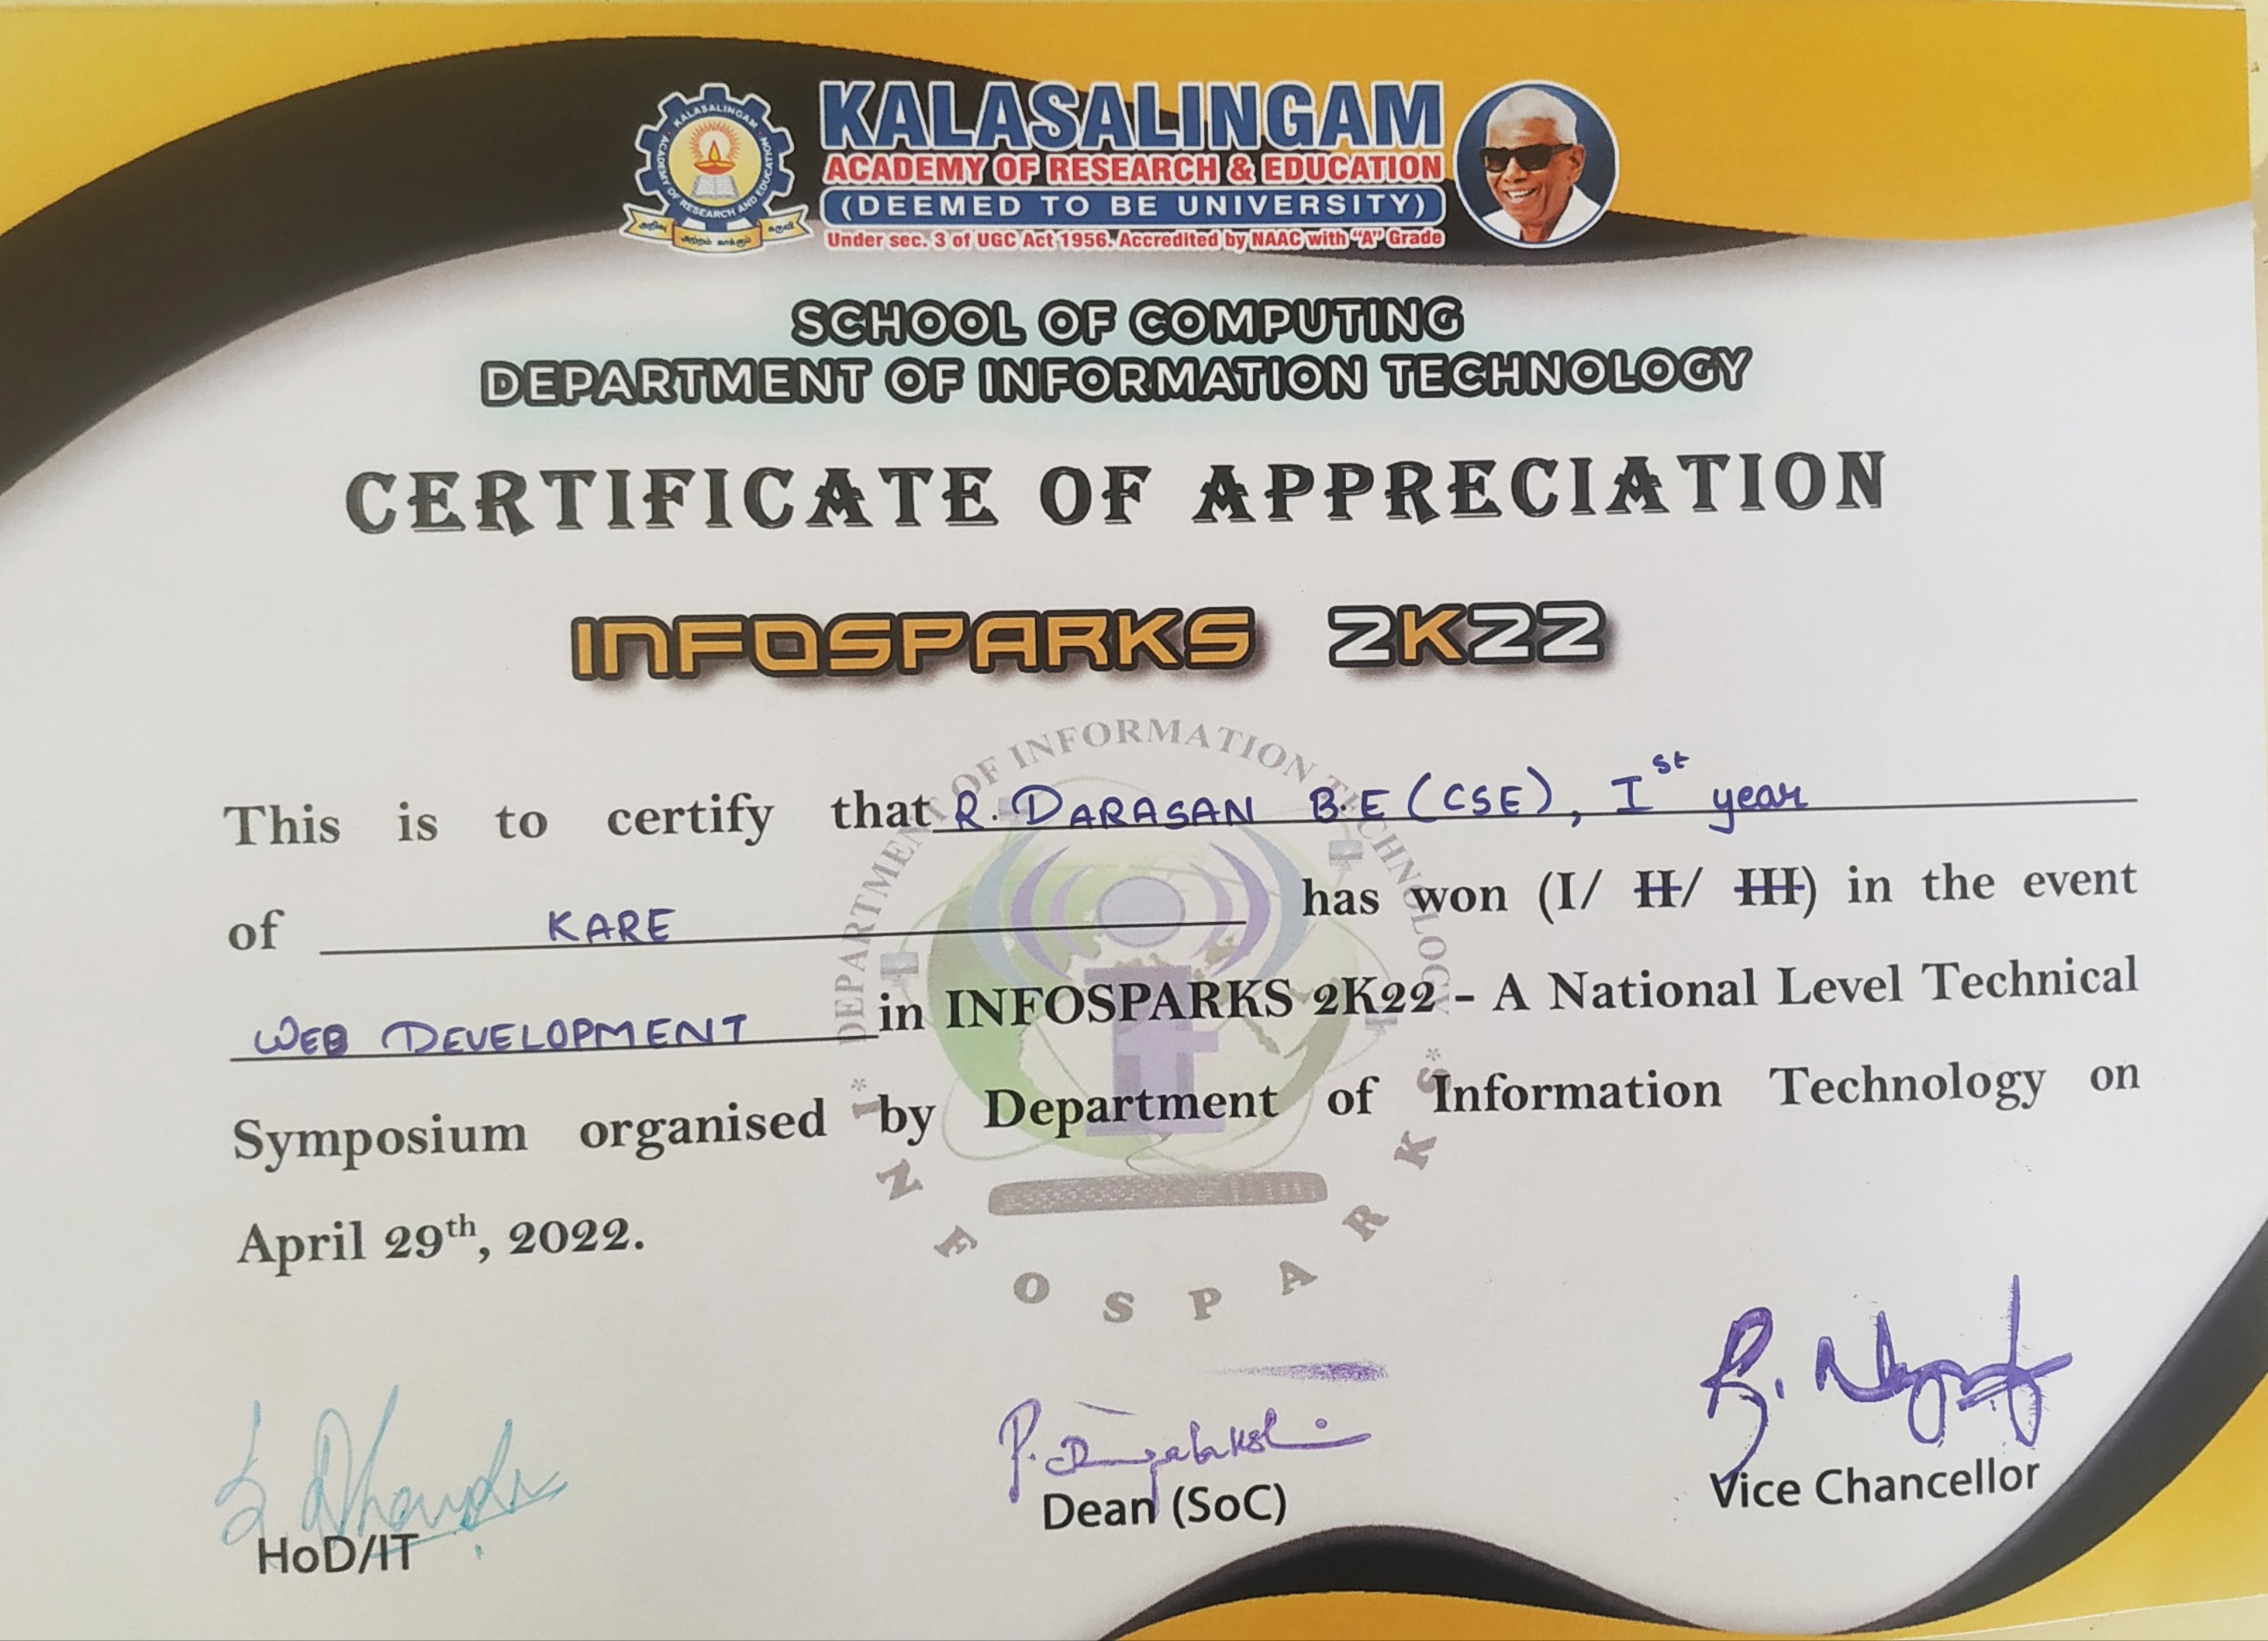 KALASALINGAM
ACADEMY OF RESEARCH & EDUCATION
(DEEMED TO BE UNIVERSITY)
Under sec. 3 of UGC Act 1956. Accredited by NAAC with "A" Grade
KALASALINGAM ACADEMY OF RESEARCH AND EDUCATION
SCHOOL OF COMPUTING
DEPARTMENT OF INFORMATION TECHNOLOGY
CERTIFICATE OF APPRECIATION
INFOSPARKS 2K22
This is to certify that R. DARASAN B.E (CSE), Ist year
of KARE has won (I/ II/ III) in the event
WEB DEVELOPMENT in INFOSPARKS 2K22 - A National Level Technical
Symposium organised by Department of Information Technology on
April 29th, 2022.
* DEPARTMENT OF INFORMATION TECHNOLOGY *
INFOSPARKS
HoD/IT
Dean (SoC)
Vice Chancellor